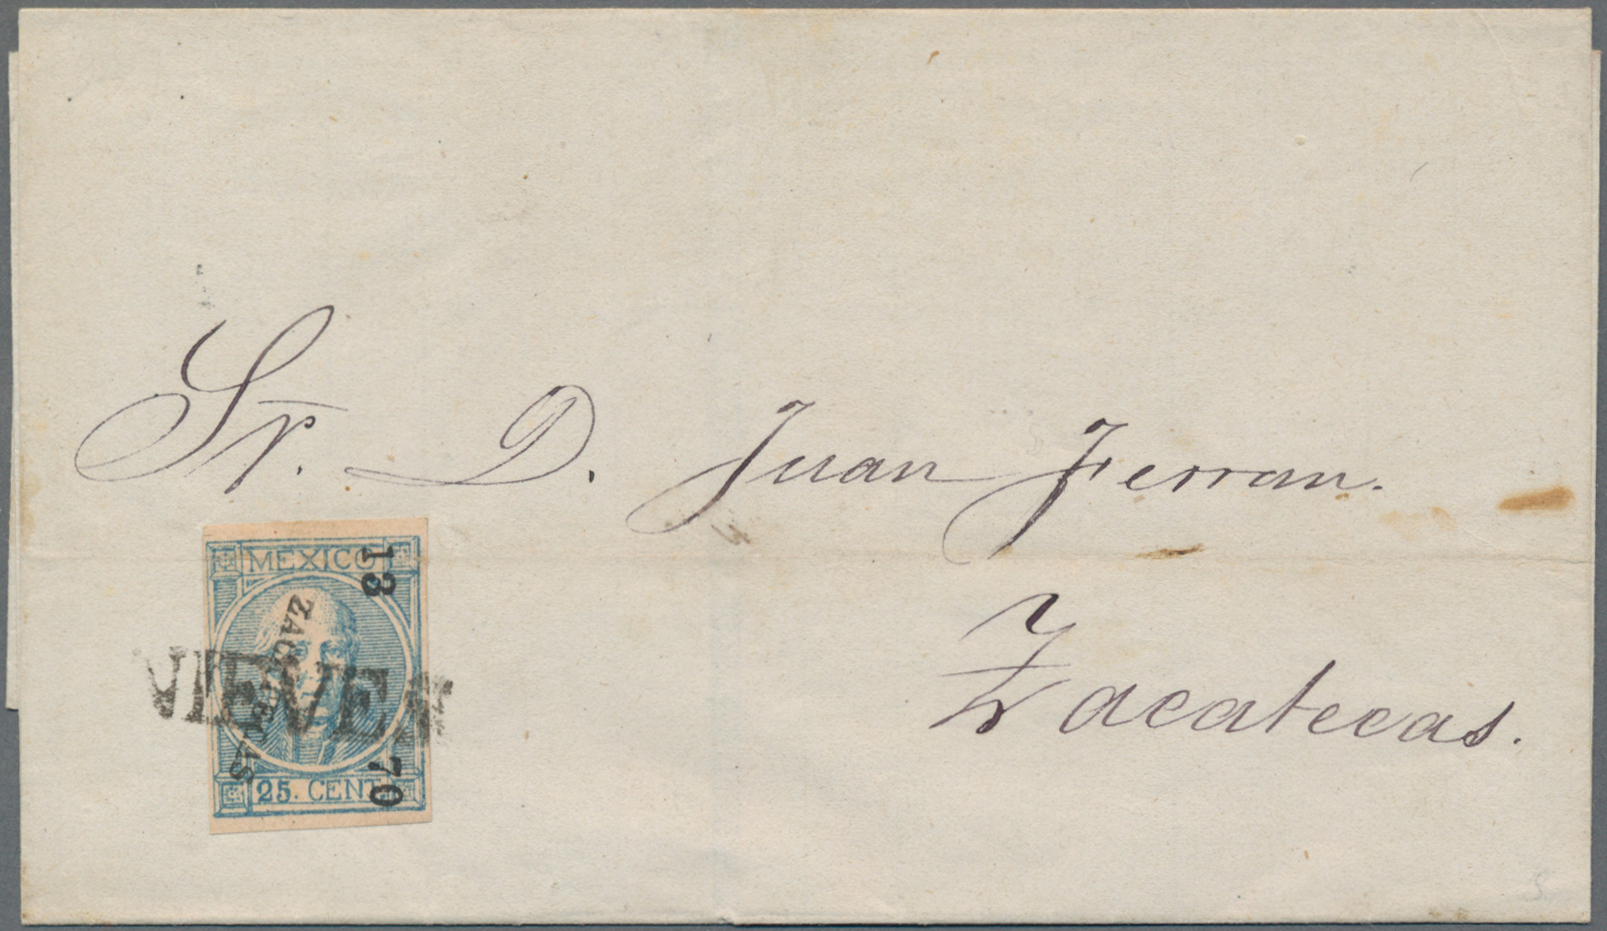 Sr. D. Juan Ferran.
Zacatecas.
MEXICO
13
ZACATECAS
70
25. CENT